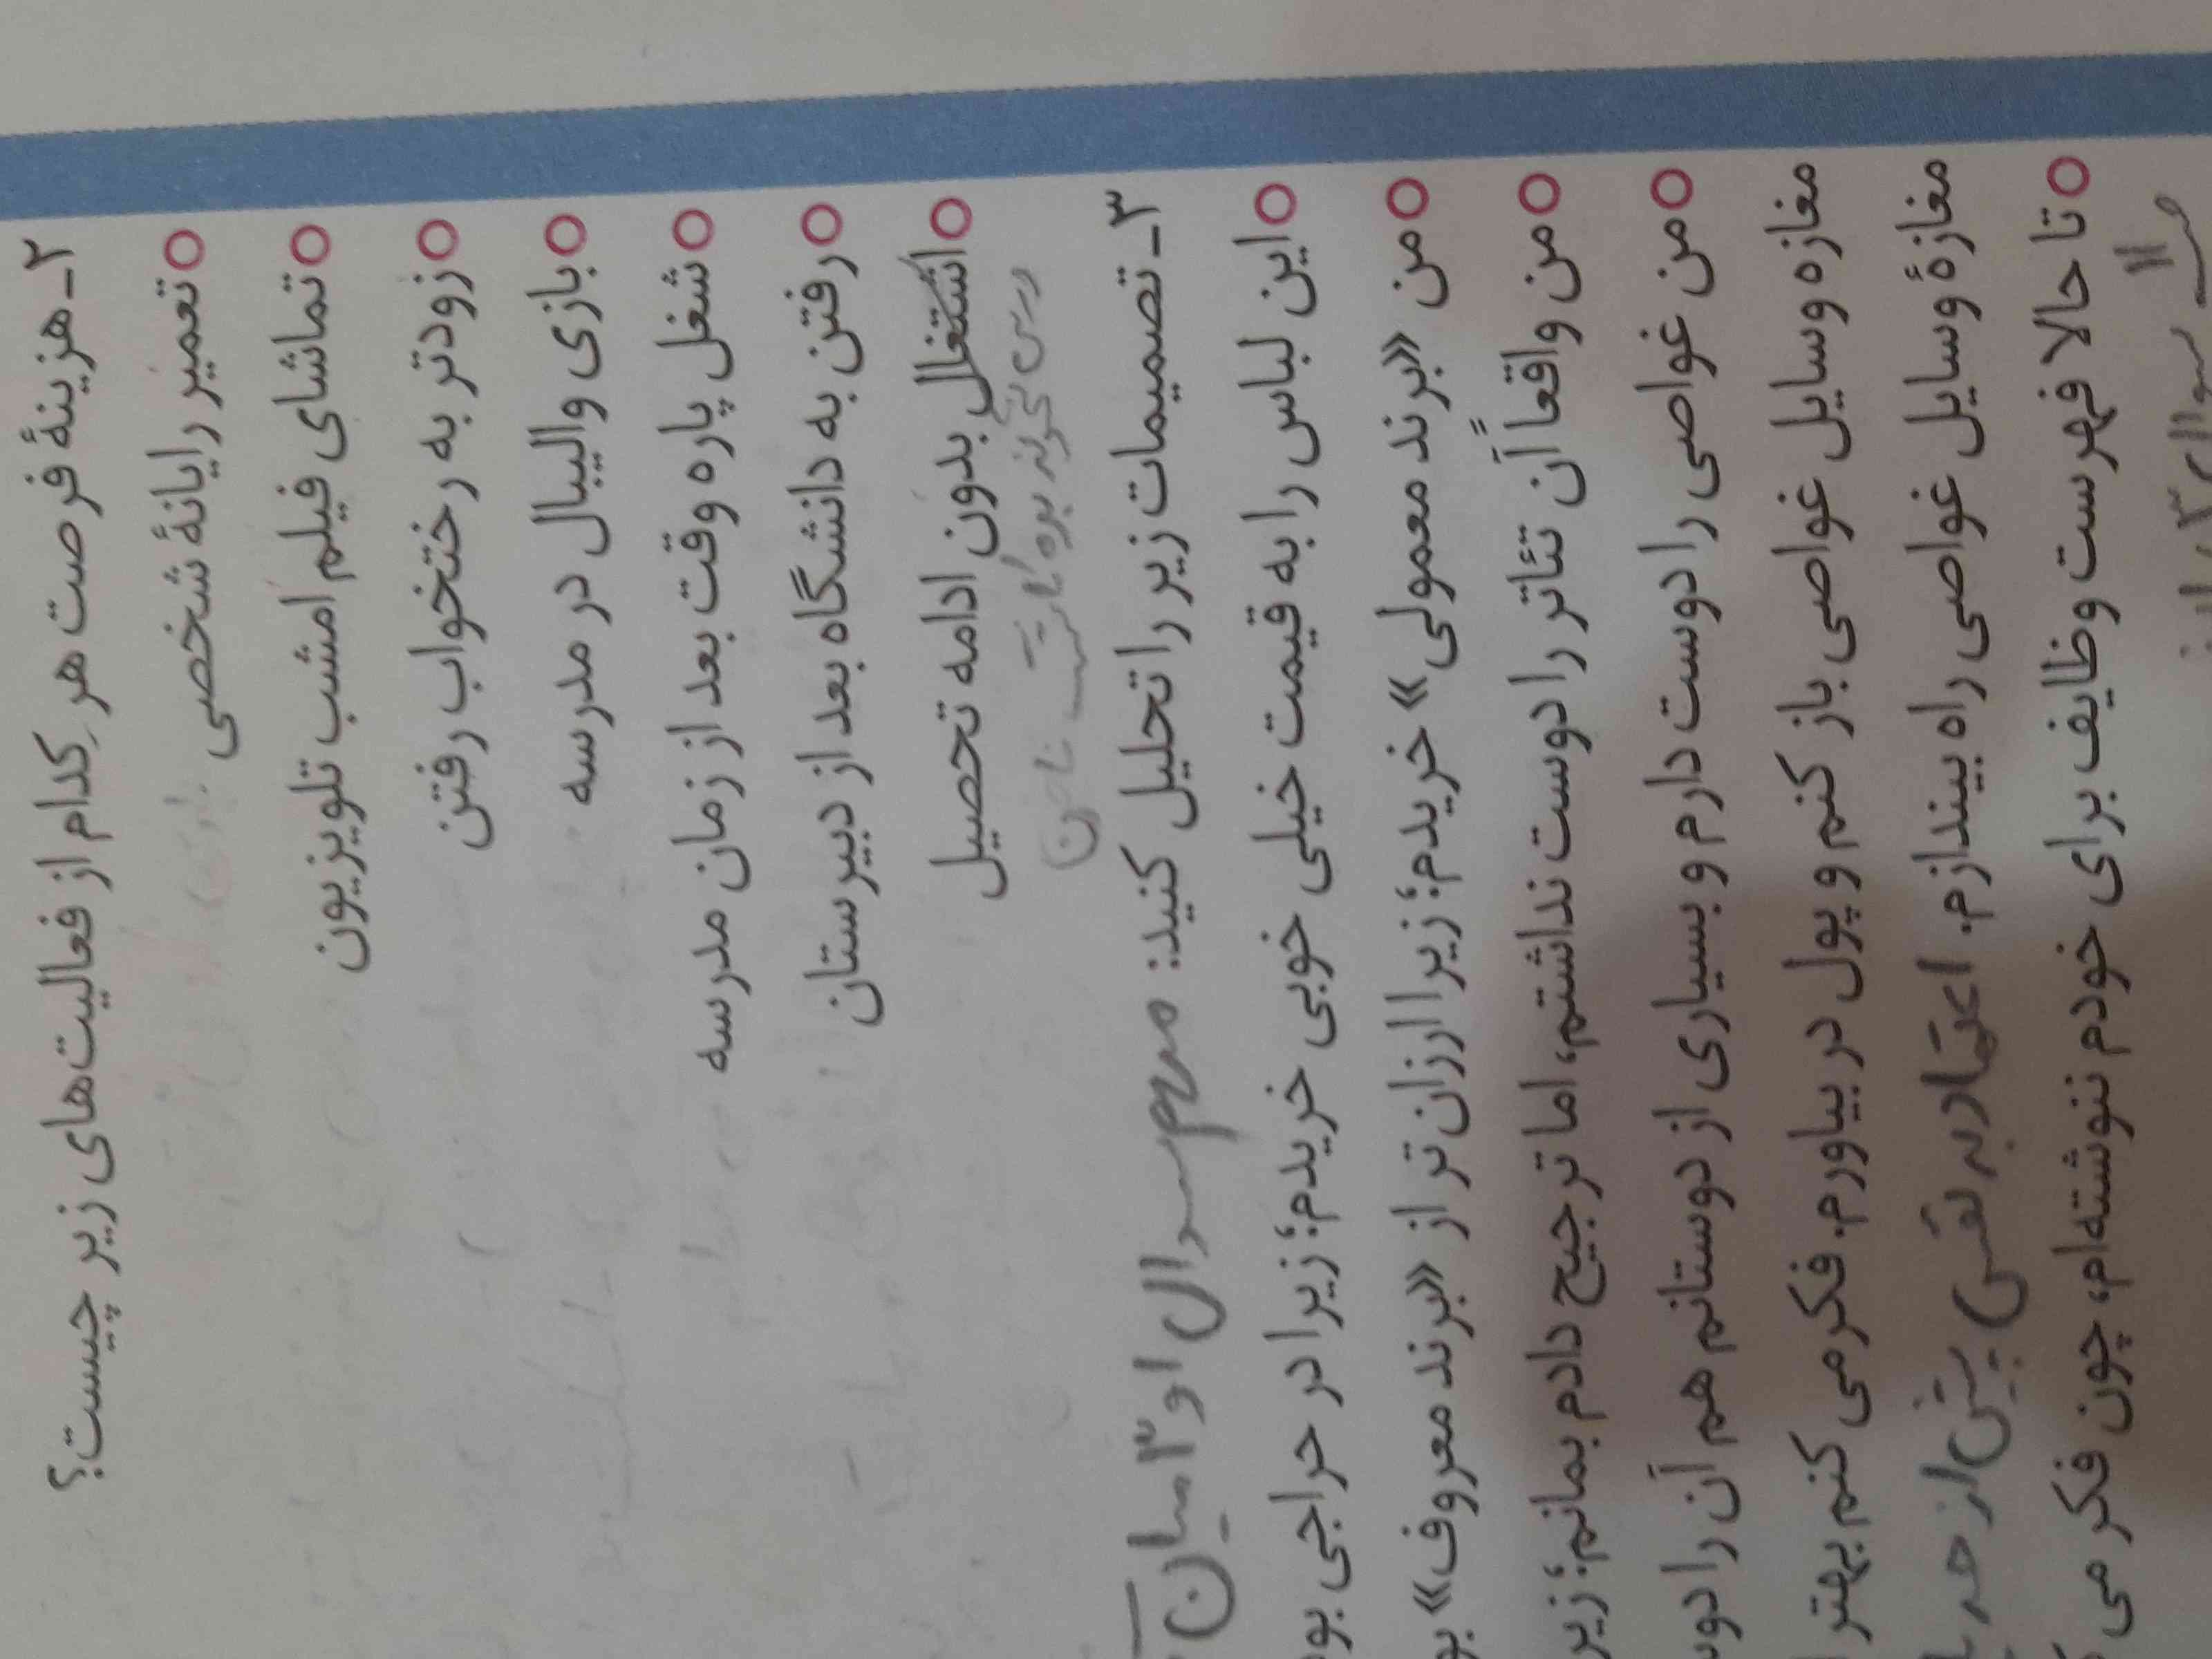 ۲ـ هزینهٔ فرصت هر کدام از فعالیت‌های زیر چیست؟
تعمیر رایانهٔ شخصی
تماشای فیلم امشب تلویزیون
زودتر به رختخواب رفتن
بازی والیبال در مدرسه
شغل پاره وقت بعد از زمان مدرسه
رفتن به دانشگاه بعد از دبیرستان
اشتغال بدون ادامه تحصیل
۳ـ تصمیمات زیر را تحلیل کنید: مهم سوال او ۳ میان
این لباس را به قیمت خیلی خوبی خریدم؛ زیرا در حراجی بو
من «برند معمولی» خریدم؛ زیرا ارزان تر از «برند معروف» بو
من واقعاً آن تئاتر را دوست نداشتم، اما ترجیح دادم بمانم؛ زیر
من غواصی را دوست دارم و بسیاری از دوستانم هم آن را دو
مغازه وسایل غواصی باز کنم و پول در بیاورم. فکر می کنم بهتر
مغازهٔ وسایل غواصی راه بیندازم. اعتماد به نفس بیش از حد
تا حالا فهرست وظایف برای خودم ننوشته‌ام، چون فکر می
سوال ۳